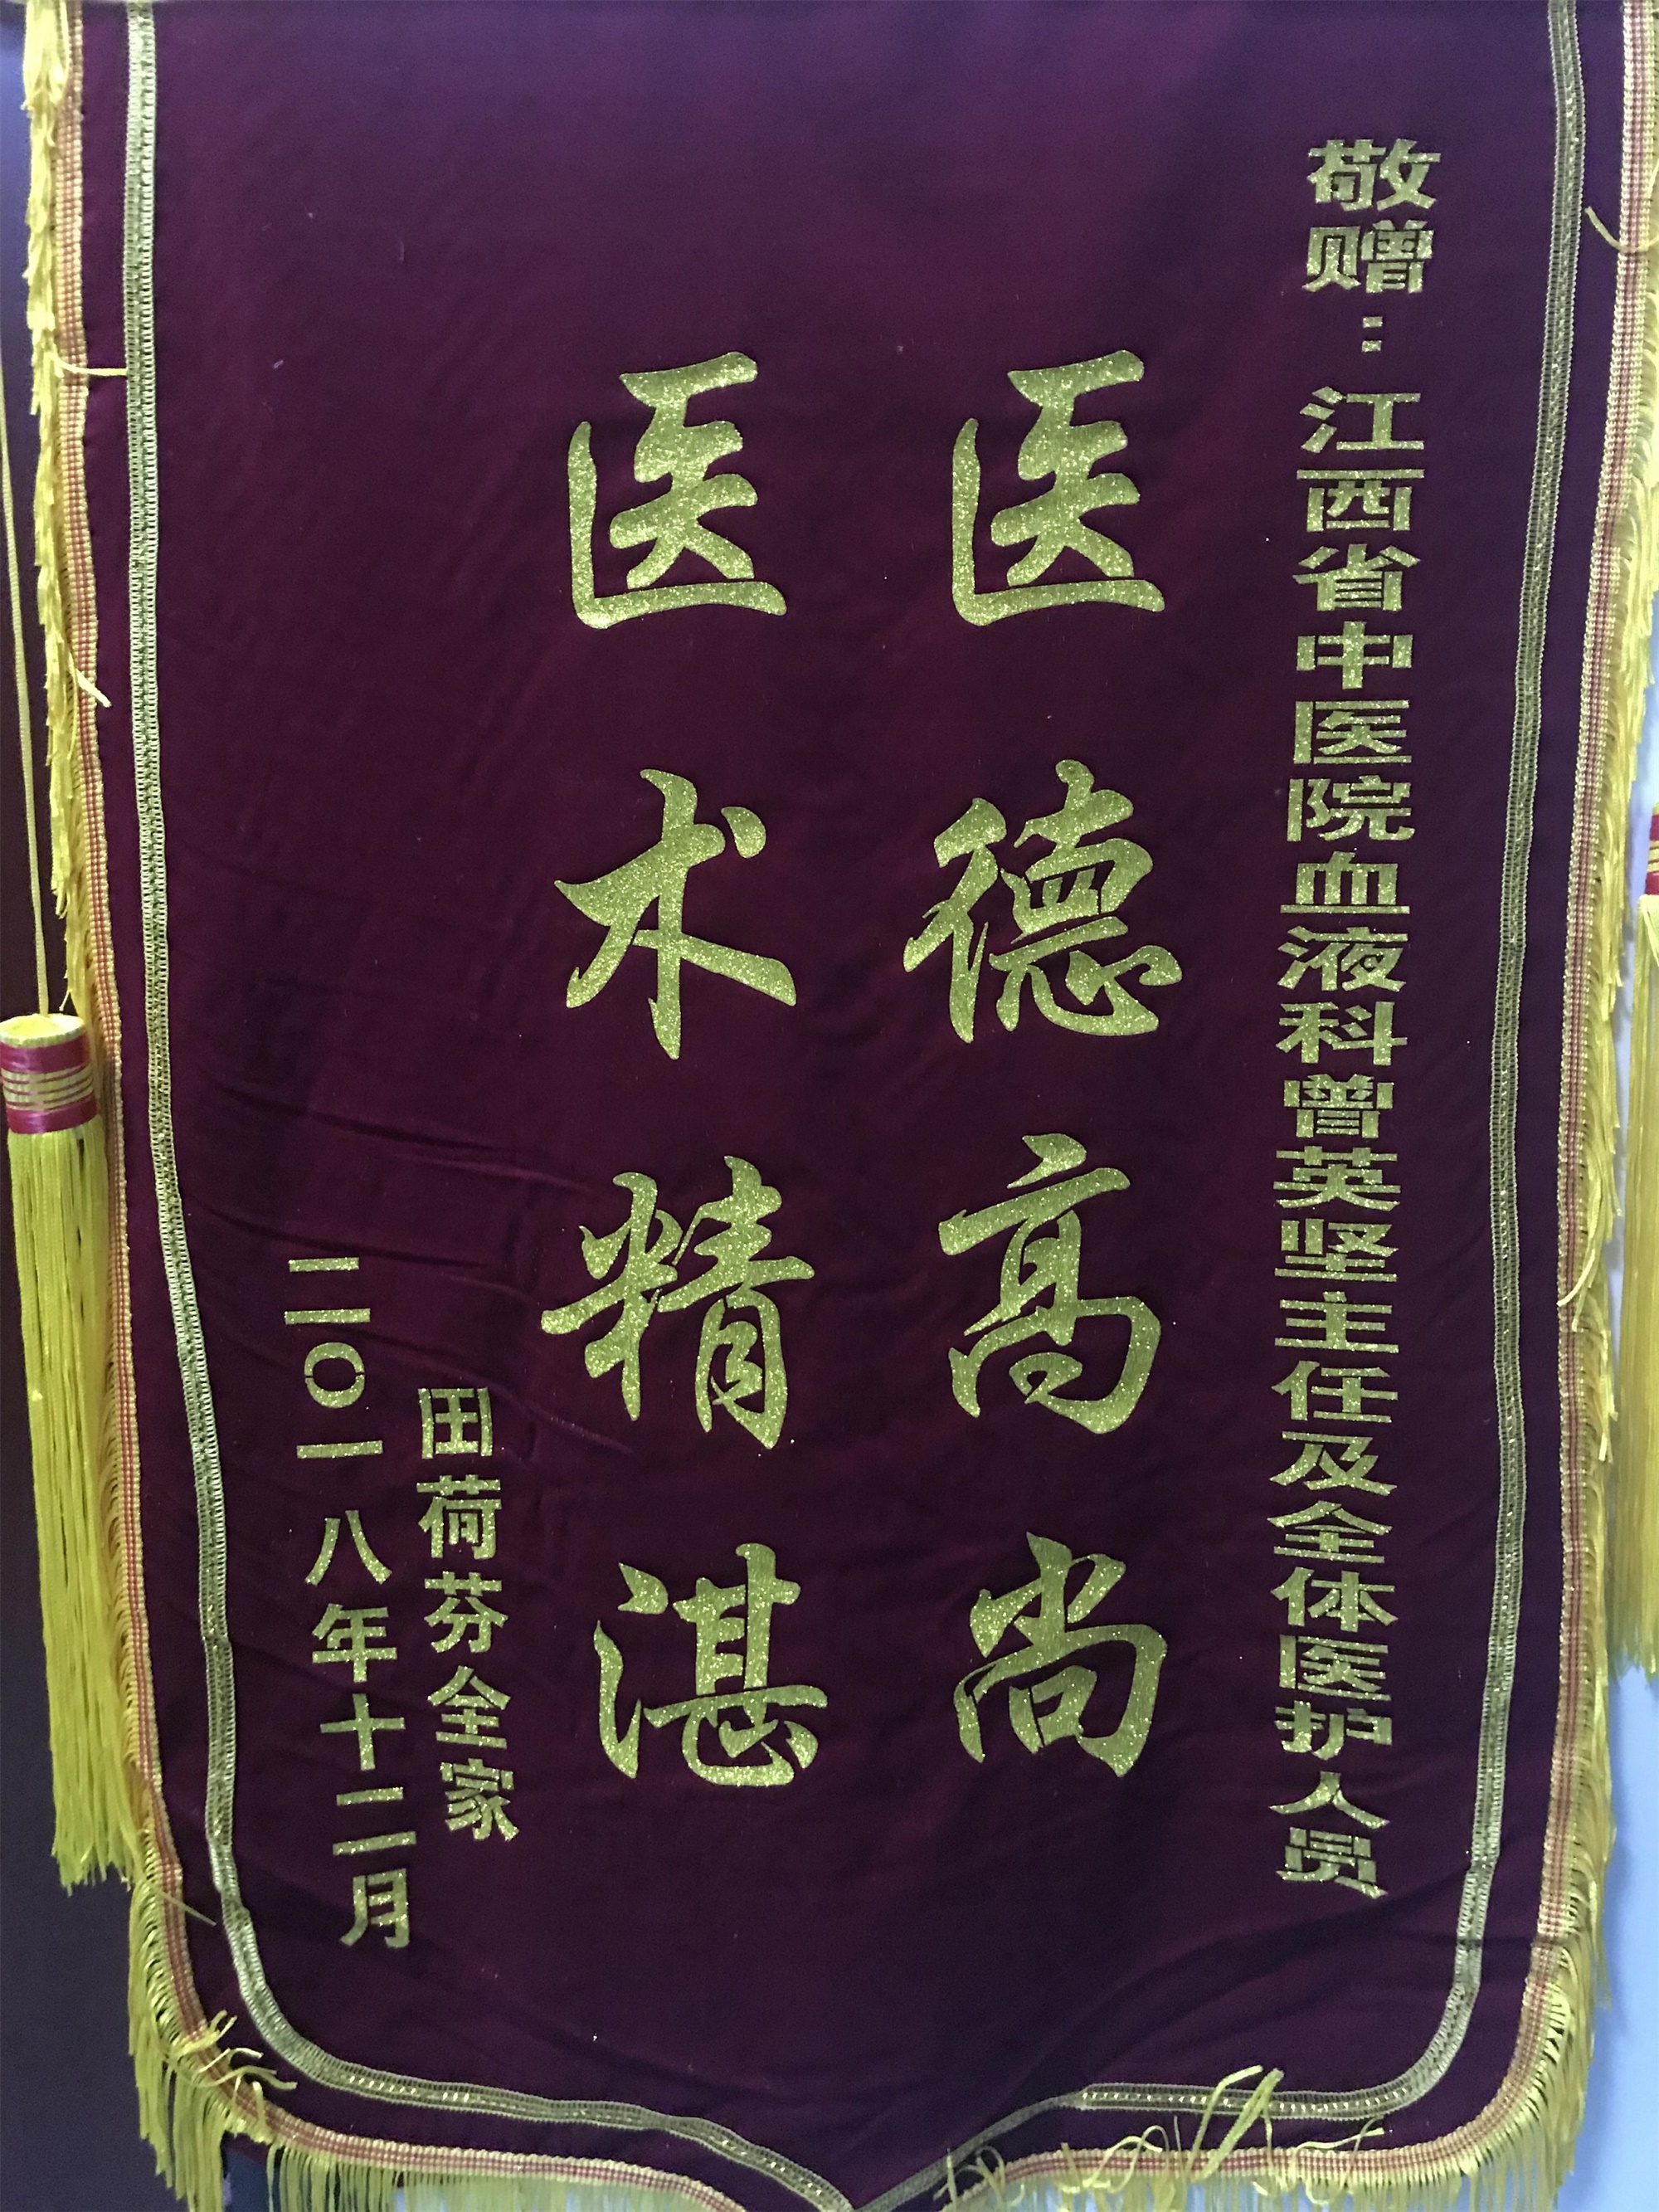 敬赠：江西省中医院血液科曾英坚主任及全体医护人员
医德高尚
医术精湛
田荷芬全家
二〇一八年十二月